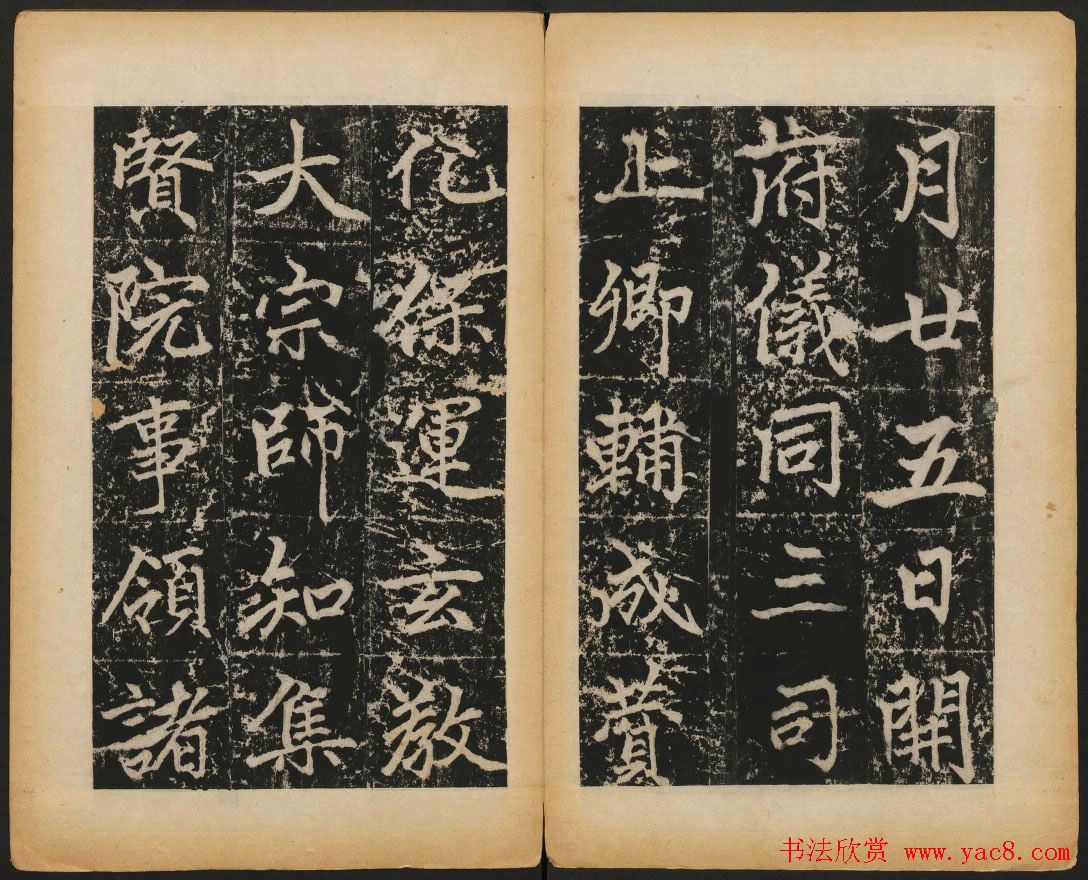 月廿五日開
府儀同三司
上卿輔成賛
化保運玄教
大宗師知集
賢院事領諸
书法欣赏 www.yac8.com